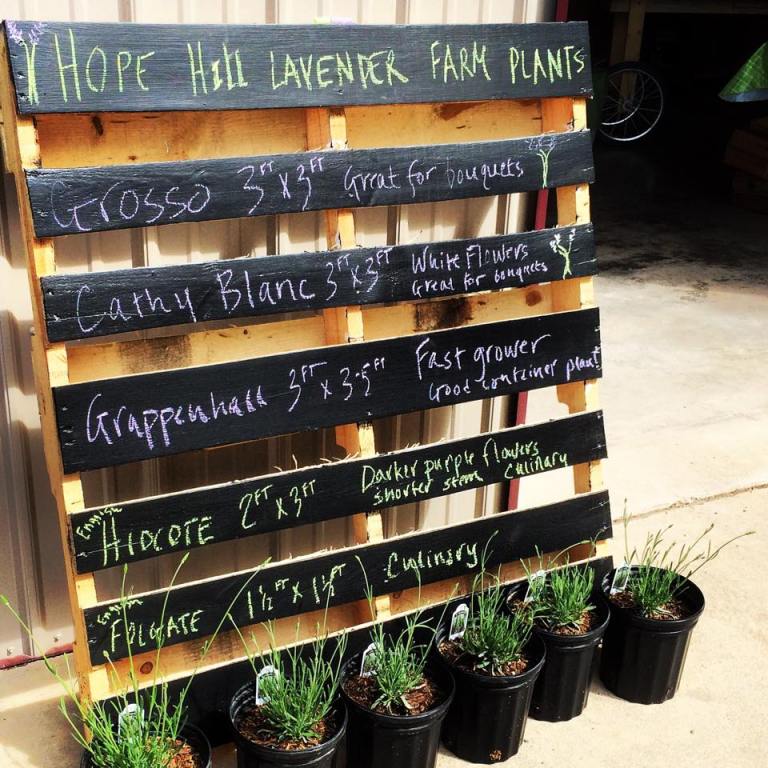 HOPE Hill LAVENDER FARM PLANTS
Grosso 3FT x 3FT Great for bouquets
Cathy Blanc 3FT x 3FT White Flowers
Great for bouquets
Grappenhall 3FT x 3.5FT Fast grower
Good container plant
English
HIDCOTE 2FT x 3FT Darker purple flowers
shorter stem Culinary
English
FOLGATE 1½FT x 1½FT Culinary